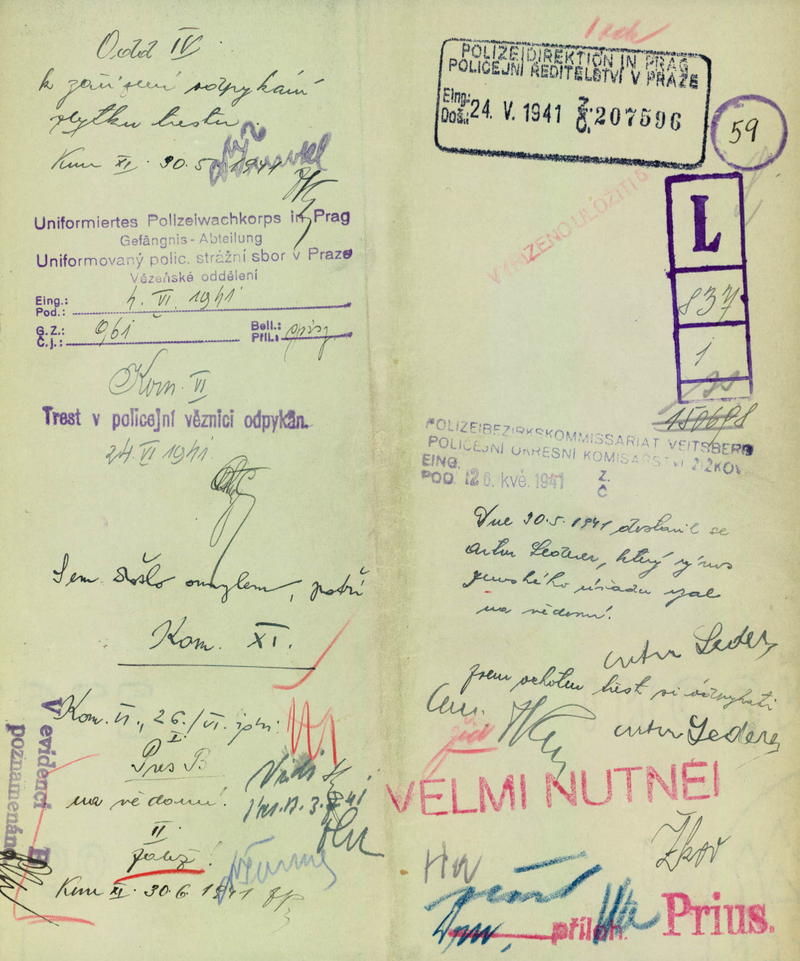 Odd IV
k zařízení odpykání
zbytku trestu.
Kom XI. 30.5. 1941
Uniformiertes Polizeiwachkorps in Prag
Gefängnis - Abteilung
Uniformovaný polic. strážní sbor v Praze
Vězeňské oddělení
Eing.:
Pod.: 4. VI. 1941
G. Z.:
Č. j.: 961
Beil.:
Příl.: spisy
Kom. VI
Trest v policejní věznici odpykán.
24. VI 1941.
Sem došlo omylem, patří
Kom. XI.
V evidenci
poznamenáno
Kom. VI., 26./VI.
I.
Pres B
na vědomí.
II.
Založ!
Kom XI. 30.6. 1941
POLIZEIDIREKTION IN PRAG
POLICEJNÍ ŘEDITELSTVÍ V PRAZE
Eing.:
Doš.: 24. V. 1941 Z. Č. 207596
59
VYŘÍZENO ULOŽITI
L
837
1
150698
POLIZEIBEZIRKSKOMMISSARIAT VEITSBERG
POLICEJNÍ OKRESNÍ KOMISAŘSTVÍ ŽIŽKOV
EING.
POD. 26. kvě. 1941 Z. Č.
Dne 30.5. 1941 dostavil se
Artur Lederer, který výnos
zemského úřadu vzal
na vědomí.
Artur Lederer
Jsem ochoten trest si odpykati
Artur Lederer
VELMI NUTNÉ!
Žkov
příloh.
Prius.